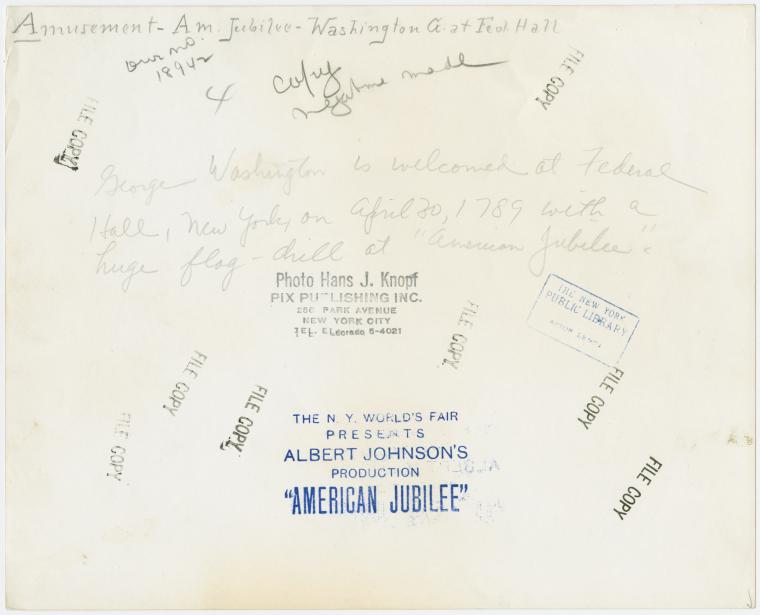 Amusement - Am. Jubilee - Washington G. at Fed. Hall
Our no.
18942
4
copy
negative made
FILE COPY
FILE COPY
George Washington is welcomed at Federal
Hall, New York, on April 30, 1789 with a
huge flag-drill at "American Jubilee".
Photo Hans J. Knopf
PIX PUBLISHING INC.
250 PARK AVENUE
NEW YORK CITY
TEL. ELdorado 5-4021
THE NEW YORK
PUBLIC LIBRARY
ASTOR LENOX
FILE COPY
FILE COPY
FILE COPY
FILE COPY
FILE COPY
FILE COPY
THE N. Y. WORLD'S FAIR
PRESENTS
ALBERT JOHNSON'S
PRODUCTION
"AMERICAN JUBILEE"